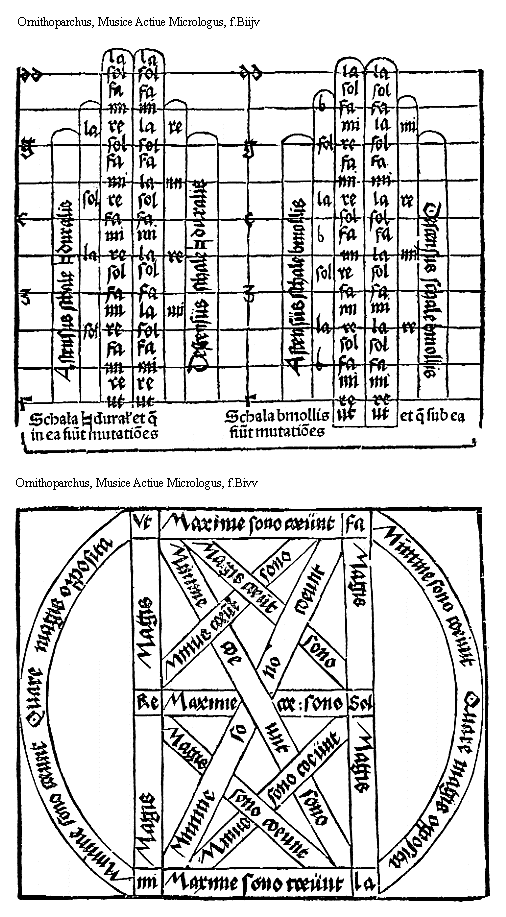 Ornithoparchus, Musice Actiue Micrologus, f.Biijv
Ascensus schale ♮ duralis
la la
sol sol
fa fa
mi mi
la re la re
sol sol
fa fa
mi la mi
sol re sol
fa fa
mi mi
la re la re
sol sol
fa fa
mi la mi
sol re sol
fa fa
mi mi
re re
ut ut
Descensus schale ♮ duralis
Ascensus schale bmollis
la la
sol sol
b fa fa
mi la mi
sol re sol
fa fa
mi mi
la re la re
sol sol
b fa fa
mi la mi
sol re sol
fa fa
mi mi
la re la re
sol sol
b fa fa
mi mi
re re
ut ut
Descensus schale bmollis
Schala ♮ dural' et q̄
in ea fiūt mutatiōes
Schala bmollis et q̄ sub ea
fiūt mutatiōes
Ornithoparchus, Musice Actiue Micrologus, f.Bivv
Vt Maxime sono coeūnt fa
Minime sono coeunt Quare magis opposita
Minime sono coeunt Quare magis opposita
Magis
Magis
Minime coeunt sono
Magis coeūt sono
Minus coeūt sono
Minime sono coeunt
Re Maxime coe: sono Sol
Magis
Magis
Magis sono coeunt
Minus sono coeūnt
mi Maxime sono coeūnt la